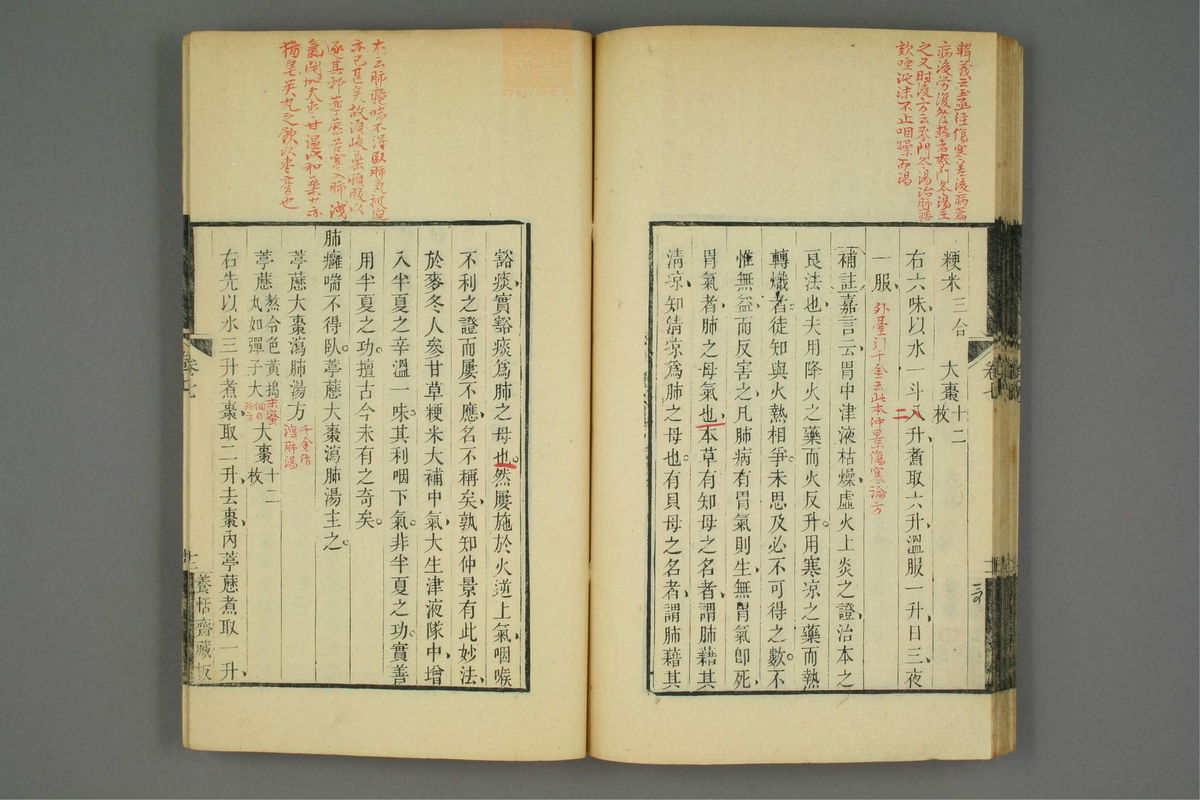 輯義云玉函經傷寒差後病篇
病後勞復發熱者麥門冬湯主
之又肘後方云麥門冬湯治肺痿
欬唾涎沫不止咽燥而渴
粳米三合 大棗十二枚
右六味以水一斗二升煮取六升溫服一升日三夜
一服 外臺引千金云此本仲景傷寒論方
補註嘉言云胃中津液枯燥虛火上炎之證治本之
良法也夫用降火之藥而火反升用寒凉之藥而熱
轉熾者徒知與火熱相爭未思及必不可得之數不
惟無益而反害之凡肺病有胃氣則生無胃氣卽死
胃氣者肺之母氣也本草有知母之名者謂肺藉其
清凉知清凉爲肺之母也有貝母之名者謂肺藉其
卷七
本云肺癰喘不得臥肺氣被迫
亦已甚矣故須峻藥頓服以
逐其邪葶藶苦寒入肺洩
氣閉加大棗甘溫以和藥力亦
猶皂莢丸之飲以棗膏也
豁痰實豁痰爲肺之母也然屢施於火逆上氣咽喉
不利之證而屢不應名不稱矣孰知仲景有此妙法
於麥冬人參甘草粳米大補中氣大生津液隊中增
入半夏之辛溫一味其利咽下氣非半夏之功實善
用半夏之功擅古今未有之奇矣
肺癰喘不得臥葶藶大棗瀉肺湯主之
葶藶大棗瀉肺湯方
葶藶熬令色黃搗末蜜丸如彈子大 大棗十二枚
右先以水三升煮棗取二升去棗內葶藶煮取一升
卷七
養恬齋藏板